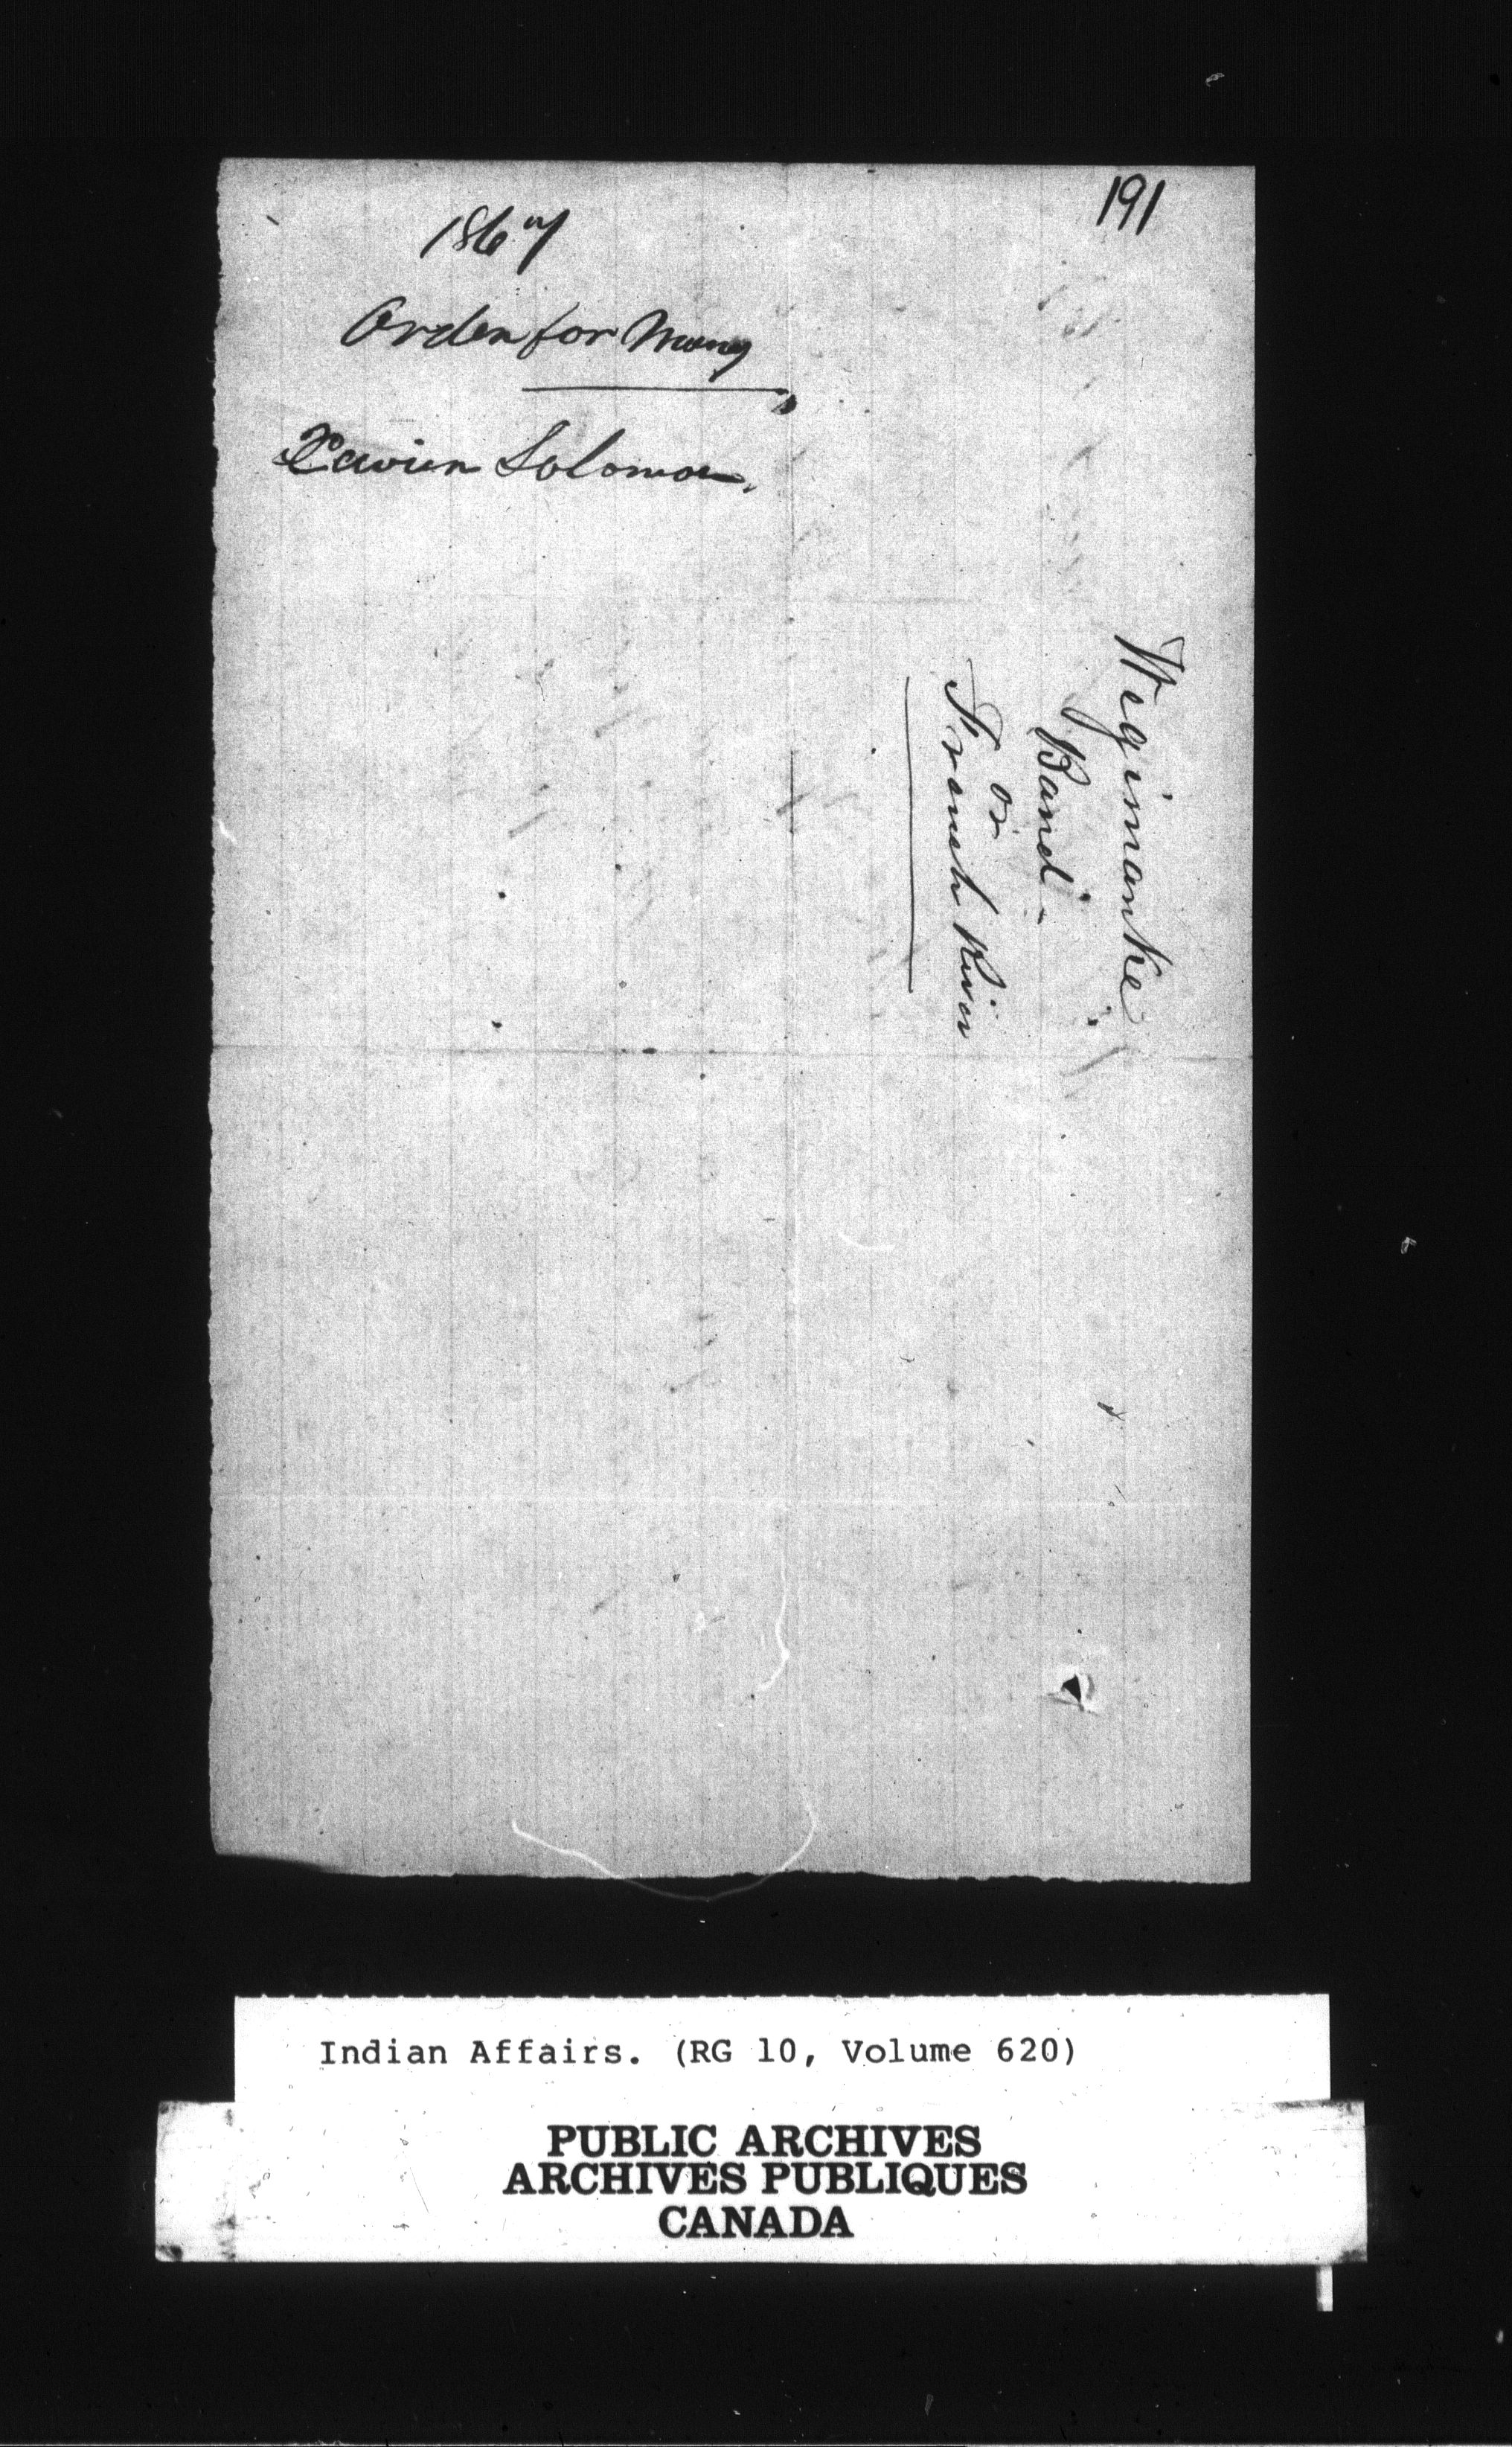 191
1867
Order for Money
Xavier Solomon.
Wegimanke
Band -
or
French River
Indian Affairs. (RG 10, Volume 620)
PUBLIC ARCHIVES
ARCHIVES PUBLIQUES
CANADA